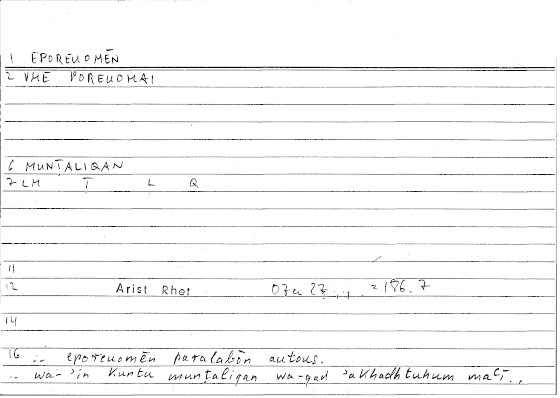 1 EPOREUOMĒN
2 VME POREUOMAI
6 MUNṬALIQAN
7 LM Ṭ L Q
11
12 Arist Rhet 07a 27 = 186.7
14
16 :- eporeuomēn paralabōn autous.
:- wa-ʾin kuntu munṭaliqan wa-qad ʾakhadhtuhum maʿī..